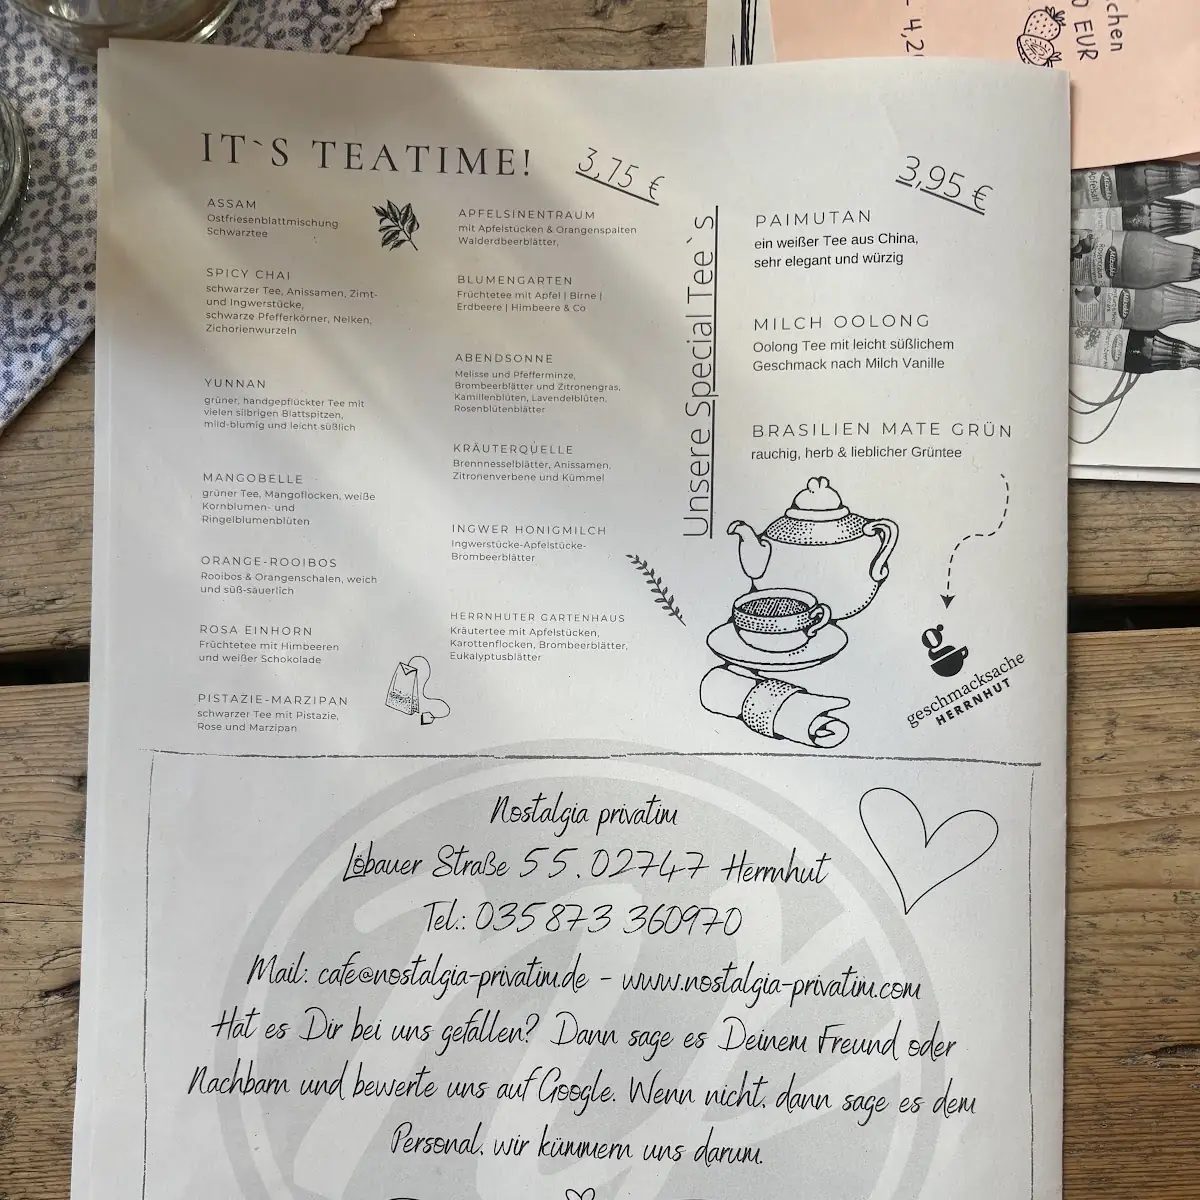 IT`S TEATIME!
3,75 €
ASSAM
Ostfriesenblattmischung
Schwarztee
SPICY CHAI
schwarzer Tee, Anissamen, Zimt-
und Ingwerstücke,
schwarze Pfefferkörner, Nelken,
Zichorienwurzeln
YUNNAN
grüner, handgepflückter Tee mit
vielen silbrigen Blattspitzen,
mild-blumig und leicht süßlich
MANGOBELLE
grüner Tee, Mangoflocken, weiße
Kornblumen- und
Ringelblumenblüten
ORANGE-ROOIBOS
Rooibos & Orangenschalen, weich
und süß-säuerlich
ROSA EINHORN
Früchtetee mit Himbeeren
und weißer Schokolade
PISTAZIE-MARZIPAN
schwarzer Tee mit Pistazie,
Rose und Marzipan
APFELSINENTRAUM
mit Apfelstücken & Orangenspalten
Walderdbeerblätter,
BLUMENGARTEN
Früchtetee mit Apfel | Birne |
Erdbeere | Himbeere & Co
ABENDSONNE
Melisse und Pfefferminze,
Brombeerblätter und Zitronengras,
Kamillenblüten, Lavendelblüten,
Rosenblütenblätter
KRÄUTERQUELLE
Brennnesselblätter, Anissamen,
Zitronenverbene und Kümmel
INGWER HONIGMILCH
Ingwerstücke-Apfelstücke-
Brombeerblätter
HERRNHUTER GARTENHAUS
Kräutertee mit Apfelstücken,
Karottenflocken, Brombeerblätter,
Eukalyptusblätter
Unsere Special Tee`s
3,95 €
PAIMUTAN
ein weißer Tee aus China,
sehr elegant und würzig
MILCH OOLONG
Oolong Tee mit leicht süßlichem
Geschmack nach Milch Vanille
BRASILIEN MATE GRÜN
rauchig, herb & lieblicher Grüntee
geschmacksache
HERRNHUT
Nostalgia privatim
Löbauer Straße 55. 02747 Herrnhut
Tel.: 035873 360970
Mail: cafe@nostalgia-privatim.de - www.nostalgia-privatim.com
Hat es Dir bei uns gefallen? Dann sage es Deinem Freund oder
Nachbarn und bewerte uns auf Google. Wenn nicht, dann sage es dem
Personal, wir kümmern uns darum.
chen
EUR